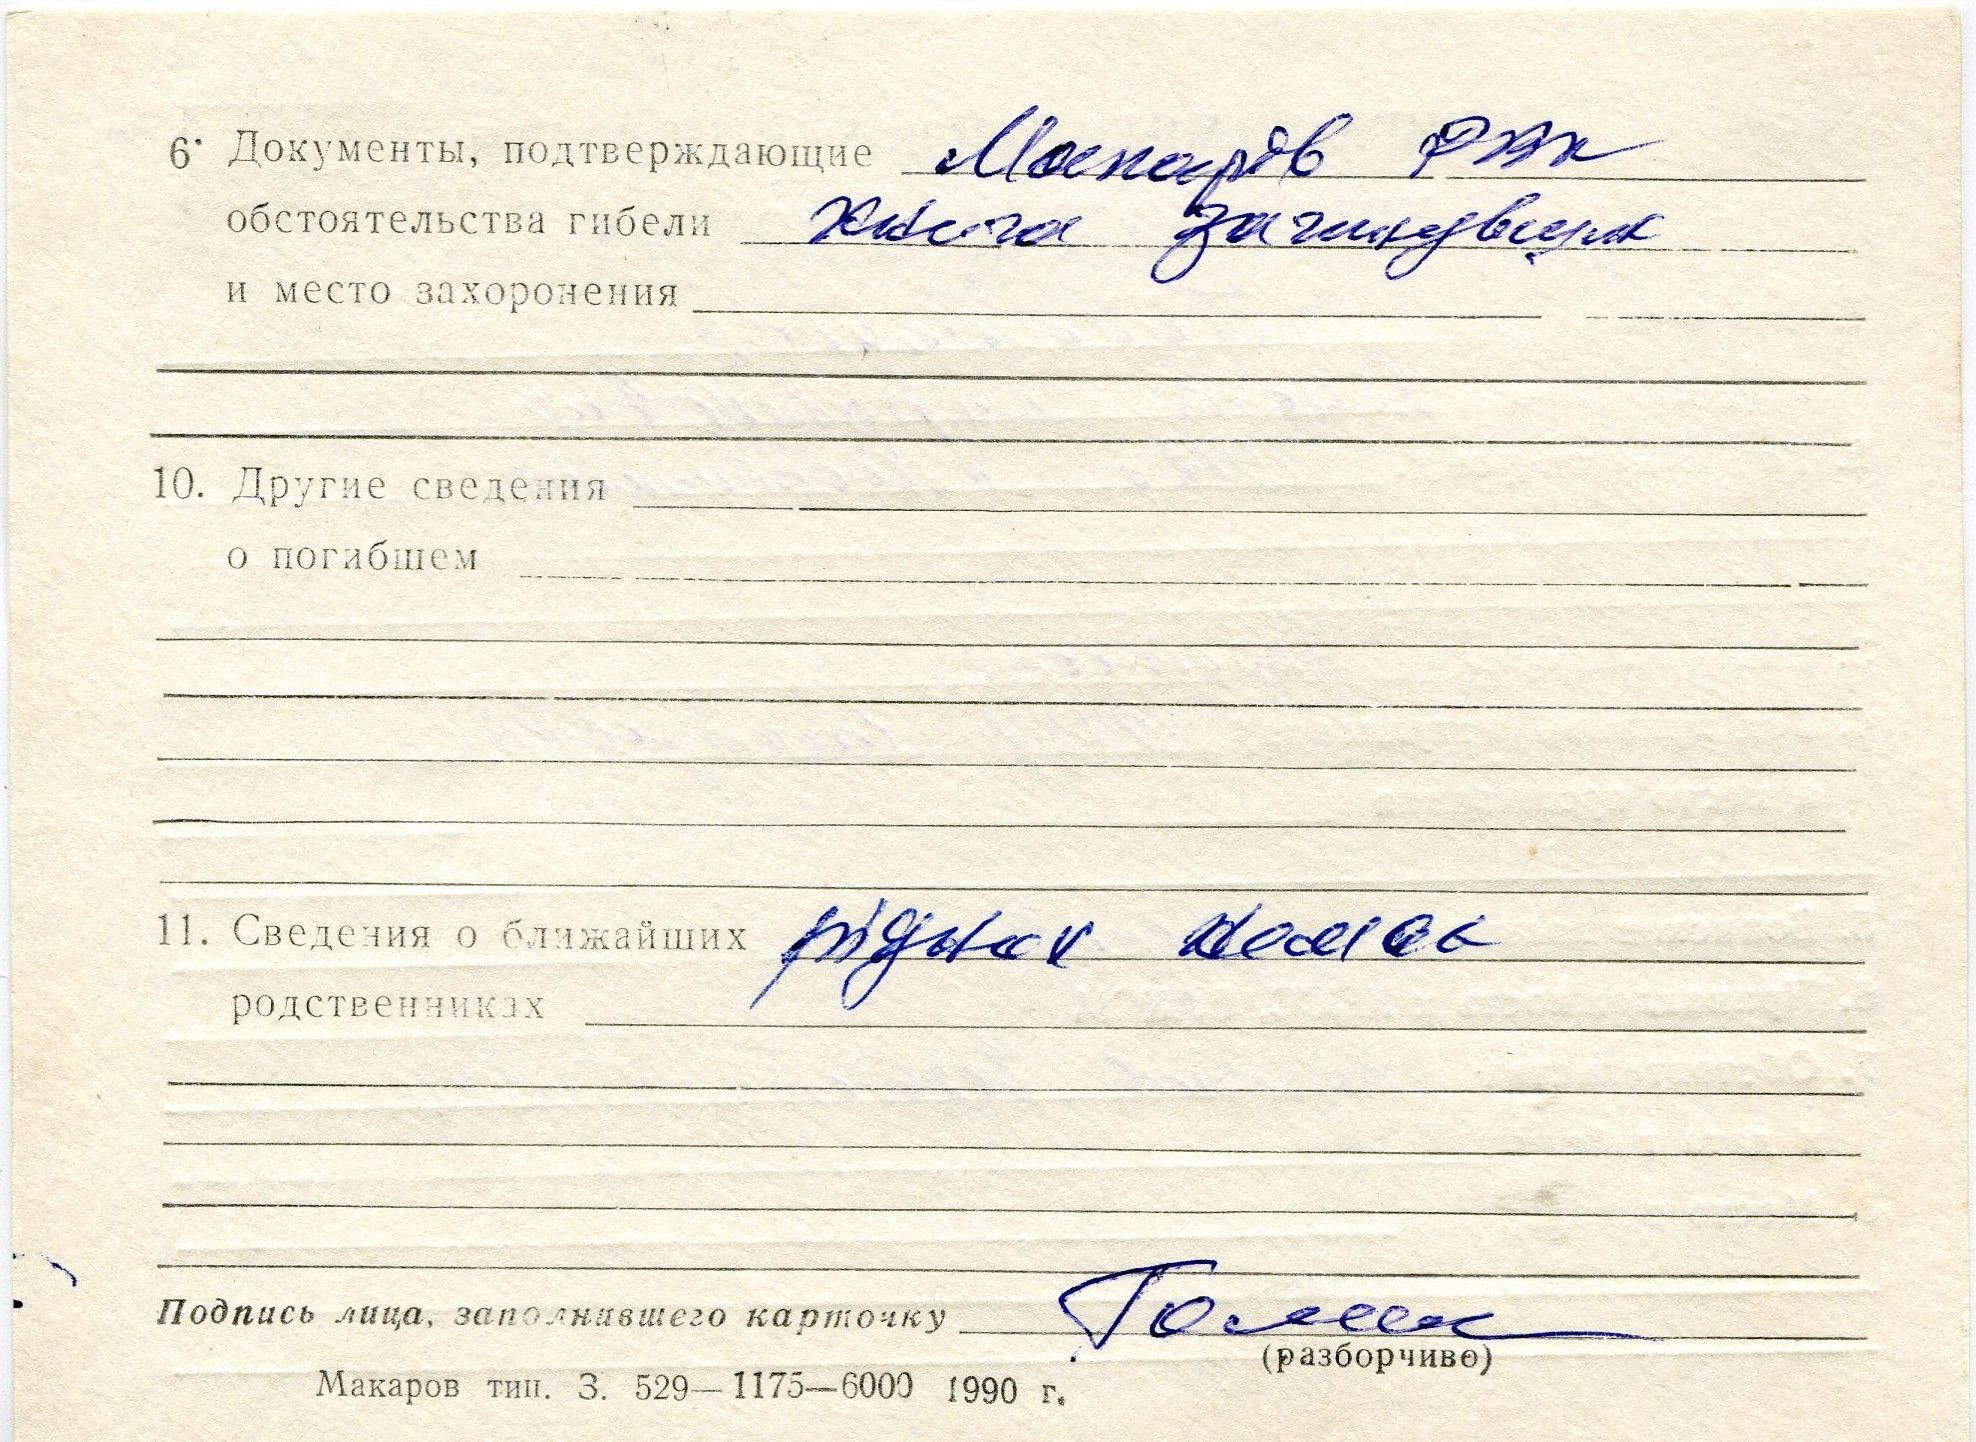 6. Документы, подтверждающие Макарів РВК
обстоятельства гибели Книга
и место захоронения
10. Другие сведения
о погибшем
11. Сведения о ближайших рідных немає
родственниках
Подпись лица, заполнившего карточку
(разборчиво)
Макаров тип. З. 529—1175—6000 1990 г.